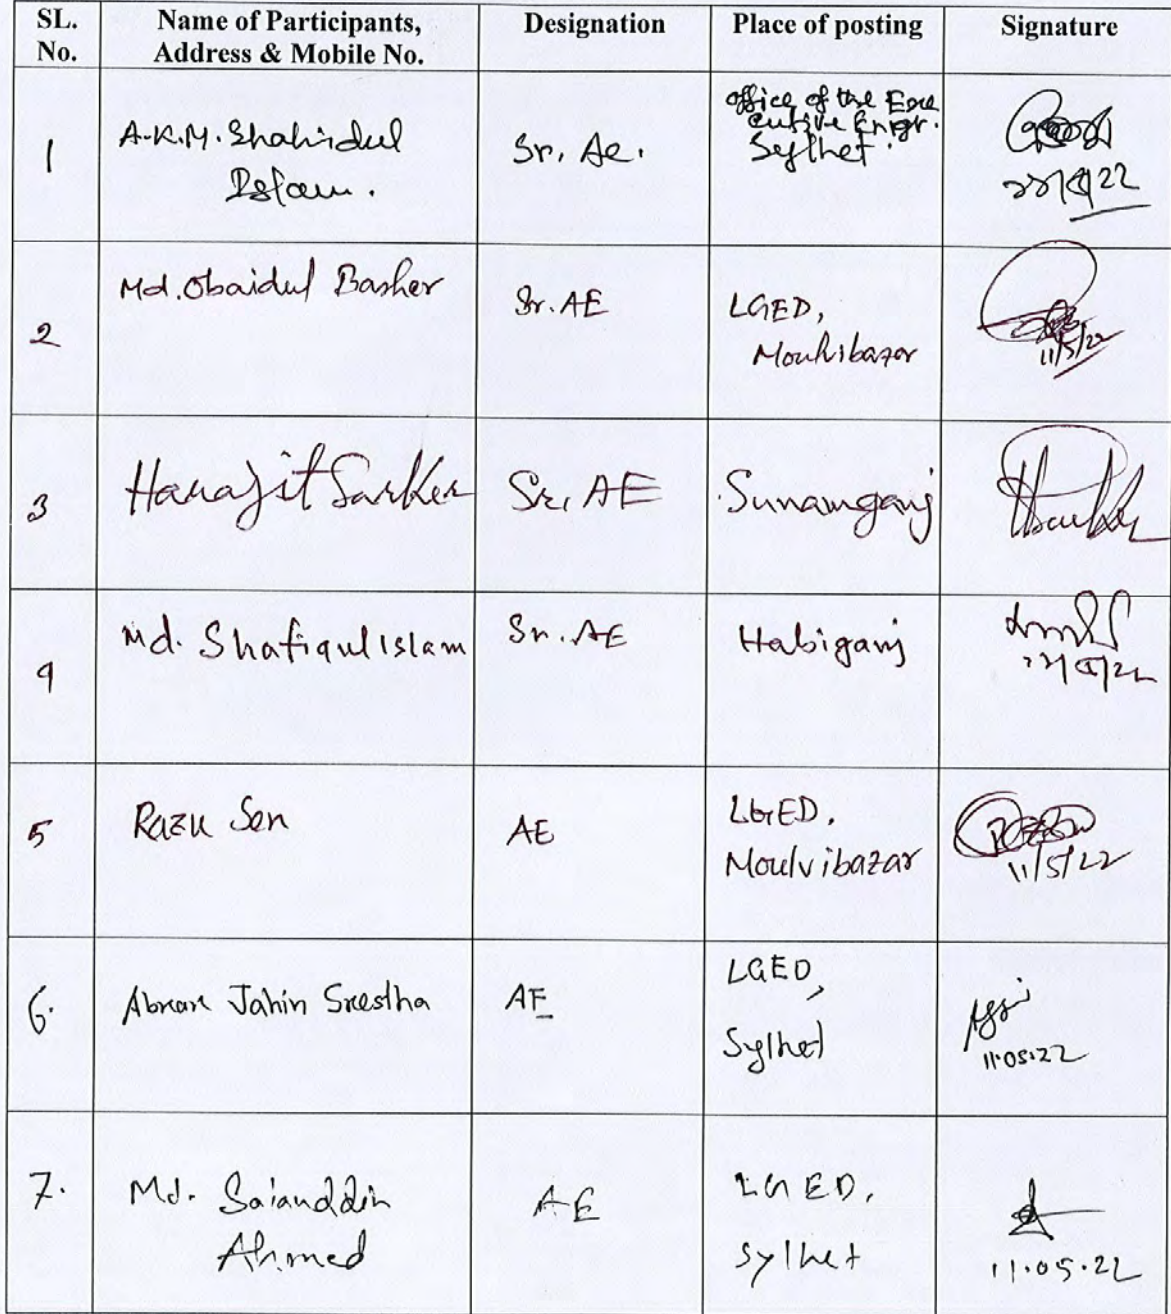 SL. No.
Name of Participants, Address & Mobile No.
Designation
Place of posting
Signature
1
A.K.M. Shahidul
Islam.
Sr. Ae.
office of the Exe
cutive Engr.
Sylhet.
2
Md. Obaidul Basher
Sr. AE
LGED,
Moulvibazar
11/5/22
3
Sarker
Sr. AE
Sunamganj
4
Md. Shafiqul Islam
Sr. AE
Habiganj
5
Razu Sen
AE
LGED,
Moulvibazar
11/5/22
6.
Abrar Jahin Srestha
AE
LGED,
Sylhet
11.05.22
7.
Md.
Ahmed
AE
LGED,
Sylhet
11.05.22